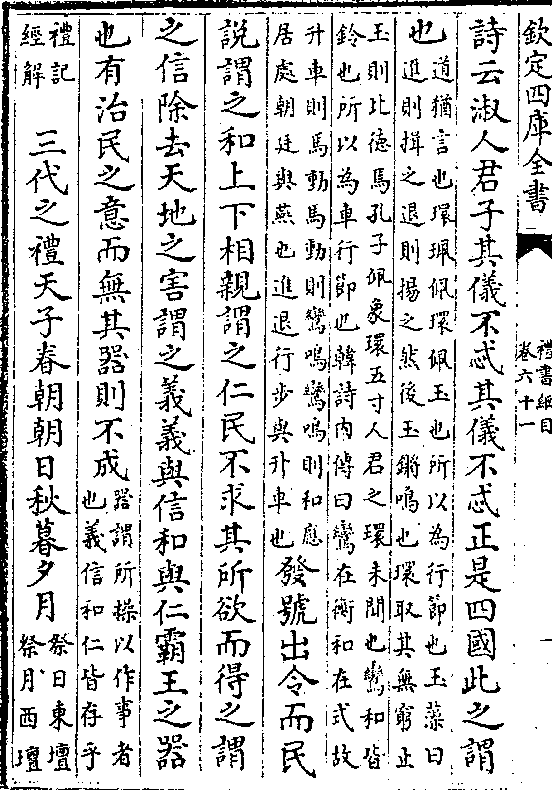 欽定四庫全書
禮書綱目
卷六十一
一
詩云淑人君子其儀不忒其儀不忒正是四國此之謂
也
道猶言也環珮佩環佩玉也所以為行節也玉藻曰
進則揖之退則揚之然後玉鏘鳴也環取其無窮止
玉則比德焉孔子佩象環五寸人君之環未聞也鸞和皆
鈴也所以為車行節也韓詩内傳曰鸞在衡和在式故
升車則馬動馬動則鸞鳴鸞鳴則和應
居處朝廷與燕也進退行步與升車也
發號出令而民
說謂之和上下相親謂之仁民不求其所欲而得之謂
之信除去天地之害謂之義義與信和與仁霸王之器
也有治民之意而無其器則不成
器謂所操以作事者
也義信和仁皆存乎
禮記
經解
三代之禮天子春朝朝日秋暮夕月
祭日東壇
祭月西壇